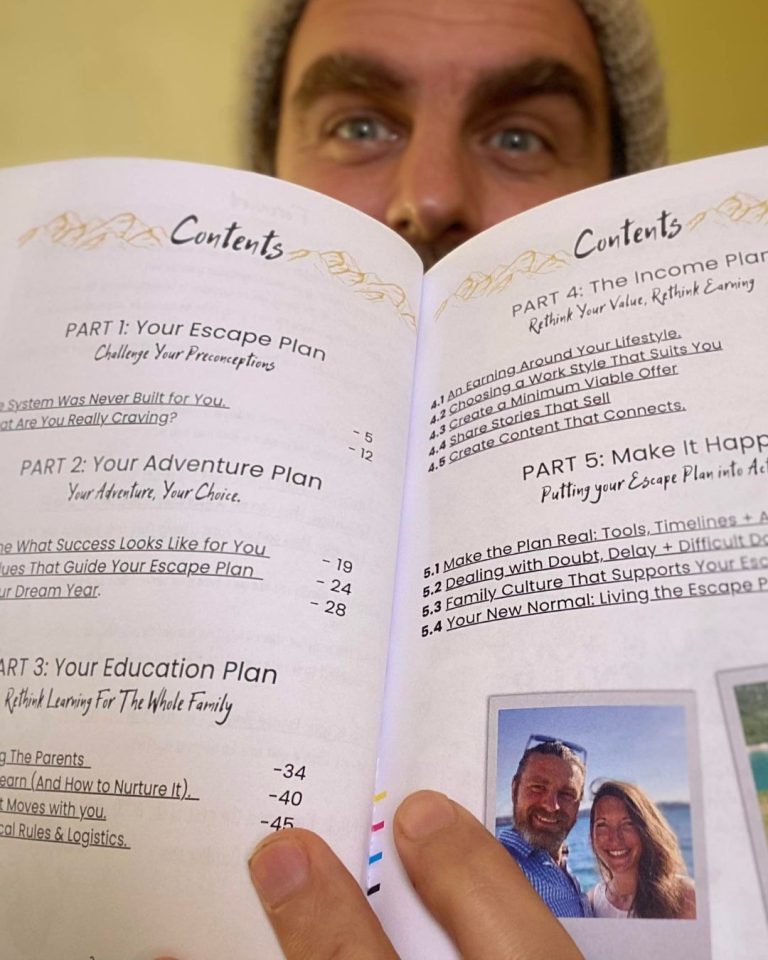 Contents
PART 1: Your Escape Plan
Challenge Your Preconceptions
System Was Never Built for You.
Are You Really Craving?
- 5
- 12
PART 2: Your Adventure Plan
Your Adventure, Your Choice.
What Success Looks Like for You
That Guide Your Escape Plan
Dream Year.
- 19
- 24
- 28
PART 3: Your Education Plan
Rethink Learning For The Whole Family
The Parents
(And How to Nurture It).
Moves with you.
Rules & Logistics.
-34
-40
-45
Contents
PART 4: The Income Plan
Rethink Your Value, Rethink Earning
4.1 An Earning Around Your Lifestyle.
4.2 Choosing a Work Style That Suits You
4.3 Create a Minimum Viable Offer
4.4 Share Stories That Sell
4.5 Create Content That Connects.
PART 5: Make It
Putting your Escape Plan into
5.1 Make the Plan Real: Tools, Timelines +
5.2 Dealing with Doubt, Delay + Difficult
5.3 Family Culture That Supports Your
5.4 Your New Normal: Living the Escape